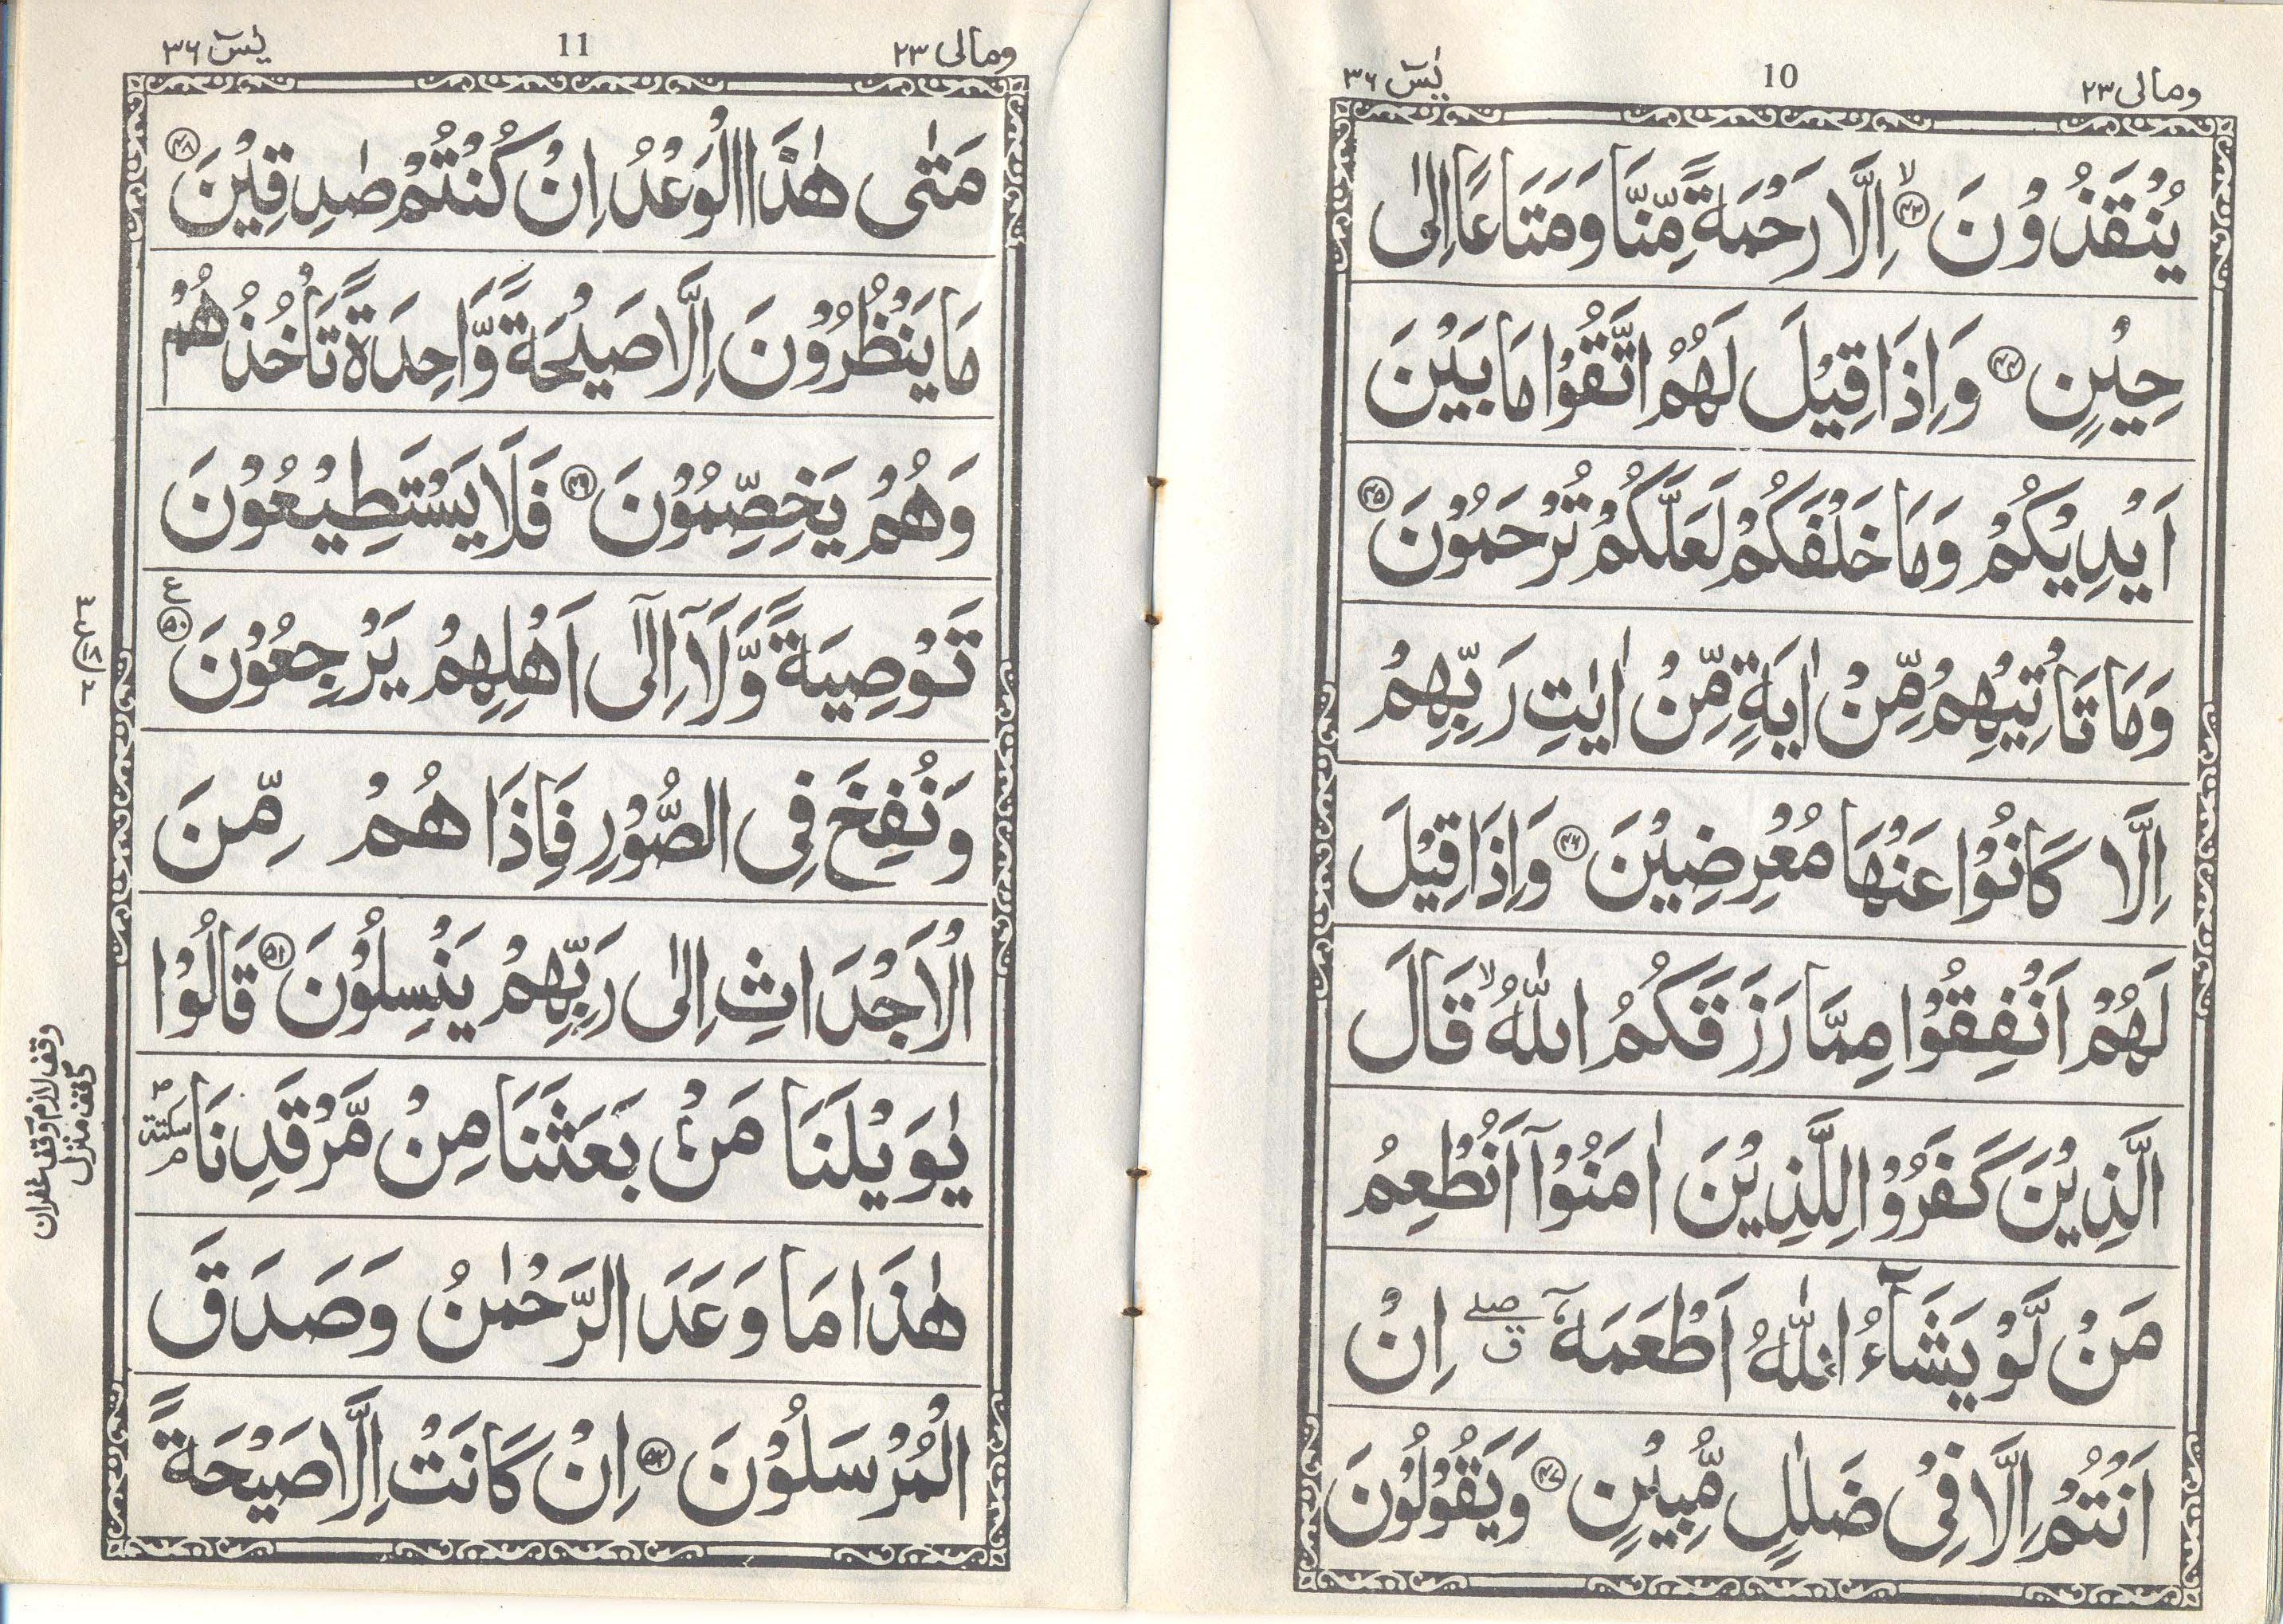 ومالی ٢٣
10
یٰسٓ ٣٦
یُنْقَذُوْنَ ۙ﴿٤٣﴾ اِلَّا رَحْمَةً مِّنَّا وَمَتَاعًا اِلٰی
حِیْنٍ ﴿٤٤﴾ وَاِذَا قِیْلَ لَهُمُ اتَّقُوْا مَا بَیْنَ
اَیْدِیْكُمْ وَمَا خَلْفَكُمْ لَعَلَّكُمْ تُرْحَمُوْنَ ﴿٤٥﴾
وَمَا تَاْتِیْهِمْ مِّنْ اٰیَةٍ مِّنْ اٰیٰتِ رَبِّهِمْ
اِلَّا كَانُوْا عَنْهَا مُعْرِضِیْنَ ﴿٤٦﴾ وَاِذَا قِیْلَ
لَهُمْ اَنْفِقُوْا مِمَّا رَزَقَكُمُ اللّٰهُ ۙ قَالَ
الَّذِیْنَ كَفَرُوْا لِلَّذِیْنَ اٰمَنُوْۤا اَنُطْعِمُ
مَنْ لَّوْ یَشَآءُ اللّٰهُ اَطْعَمَهٗۤ ۖق اِنْ
اَنْتُمْ اِلَّا فِیْ ضَلٰلٍ مُّبِیْنٍ ﴿٤٧﴾ وَیَقُوْلُوْنَ
ومالی ٢٣
11
یٰسٓ ٣٦
مَتٰی هٰذَا الْوَعْدُ اِنْ كُنْتُمْ صٰدِقِیْنَ ﴿٤٨﴾
مَا یَنْظُرُوْنَ اِلَّا صَیْحَةً وَّاحِدَةً تَاْخُذُهُمْ
وَهُمْ یَخِصِّمُوْنَ ﴿٤٩﴾ فَلَا یَسْتَطِیْعُوْنَ
تَوْصِیَةً وَّلَاۤ اِلٰۤی اَهْلِهِمْ یَرْجِعُوْنَ ﴿٥٠﴾ ع
وَنُفِخَ فِی الصُّوْرِ فَاِذَا هُمْ مِّنَ
الْاَجْدَاثِ اِلٰی رَبِّهِمْ یَنْسِلُوْنَ ﴿٥١﴾ قَالُوْا
یٰوَیْلَنَا مَنْۢ بَعَثَنَا مِنْ مَّرْقَدِنَا سکتة م
هٰذَا مَا وَعَدَ الرَّحْمٰنُ وَصَدَقَ
الْمُرْسَلُوْنَ ﴿٥٢﴾ اِنْ كَانَتْ اِلَّا صَیْحَةً
وقف لازم وقف غفران
وقف منزل